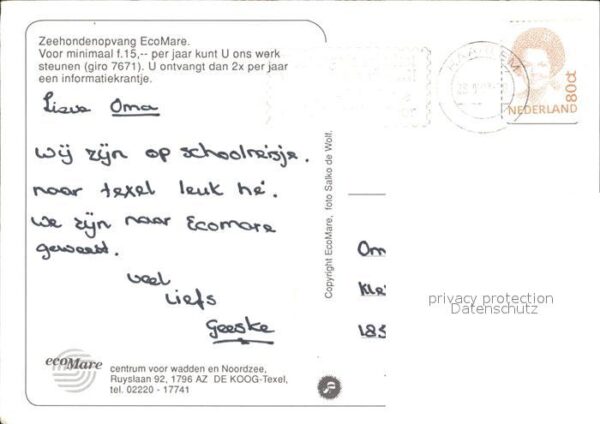 Zeehondenopvang EcoMare.
Voor minimaal f.15,-- per jaar kunt U ons werk
steunen (giro 7671). U ontvangt dan 2x per jaar
een informatiekrantje.
Lieve Oma
Wij zijn op schoolreisje.
naar texel leuk hé.
We zijn naar Ecomare
geweest.
veel
liefs
Geeske
ecoMare
centrum voor wadden en Noordzee,
Ruyslaan 92, 1796 AZ DE KOOG-Texel,
tel. 02220 - 17741
Copyright EcoMare, foto Salko de Wolf.
HAARLEM
80ct
NEDERLAND
Om
Kle
185
privacy protection
Datenschutz